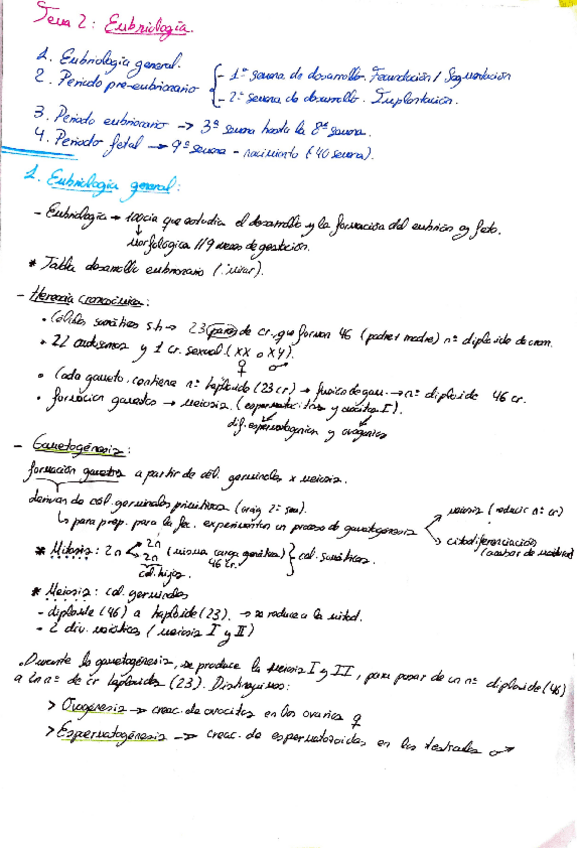 Tema 2: Embriología.
1. Embriología general.
2. Periodo pre-embrionario { - 1ª semana de desarrollo. Fecundación / Segmentación
- 2ª semana de desarrollo. Implantación.
3. Periodo embrionario → 3ª semana hasta la 8ª semana.
4. Periodo fetal → 9ª semana - nacimiento (40 semana).
1. Embriología general:
- Embriología → ciencia que estudia el desarrollo y la formación del embrión y feto.
↓
morfológica // 9 meses de gestación.
* Tabla desarrollo embrionario (mirar).
- Herencia cromosómica:
• Células somáticas s.h → 23 (pares) de cr. que forman 46 (padre y madre) nº diploide de crom.
• 22 autosomas y 1 cr. sexual (XX o XY).
♀ ♂
• Cada gameto contiene nº haploide (23 cr) → fusión de gam. → nº diploide 46 cr.
• formación gametos → meiosis. (espermatocitos y ovocitos I).
dif. espermatogénica y ovogénica
- Gametogénesis:
formación gametos a partir de cél. germinales x meiosis.
derivan de cél. germinales primitivas (orig 2ª sem).
↳ para prep. para la fec. experimentan un proceso de gametogénesis
meiosis (reducir nº cr)
citodiferenciación
(acabar de madurar)
* Mitosis: 2n < 2n 2n (misma carga genética) } cél. somáticas.
46 cr.
cél. hijas.
* Meiosis: cél. germinales
- diploide (46) a haploide (23). → se reduce a la mitad.
- 2 div. meióticas (meiosis I y II)
• Durante la gametogénesis, se produce la meiosis I y II, para pasar de un nº diploide (46)
a un nº de cr haploides (23). Distinguimos:
> Ovogénesis → creac. de ovocitos en los ovarios ♀
> Espermatogénesis → creac. de espermatozoides en los testículos ♂